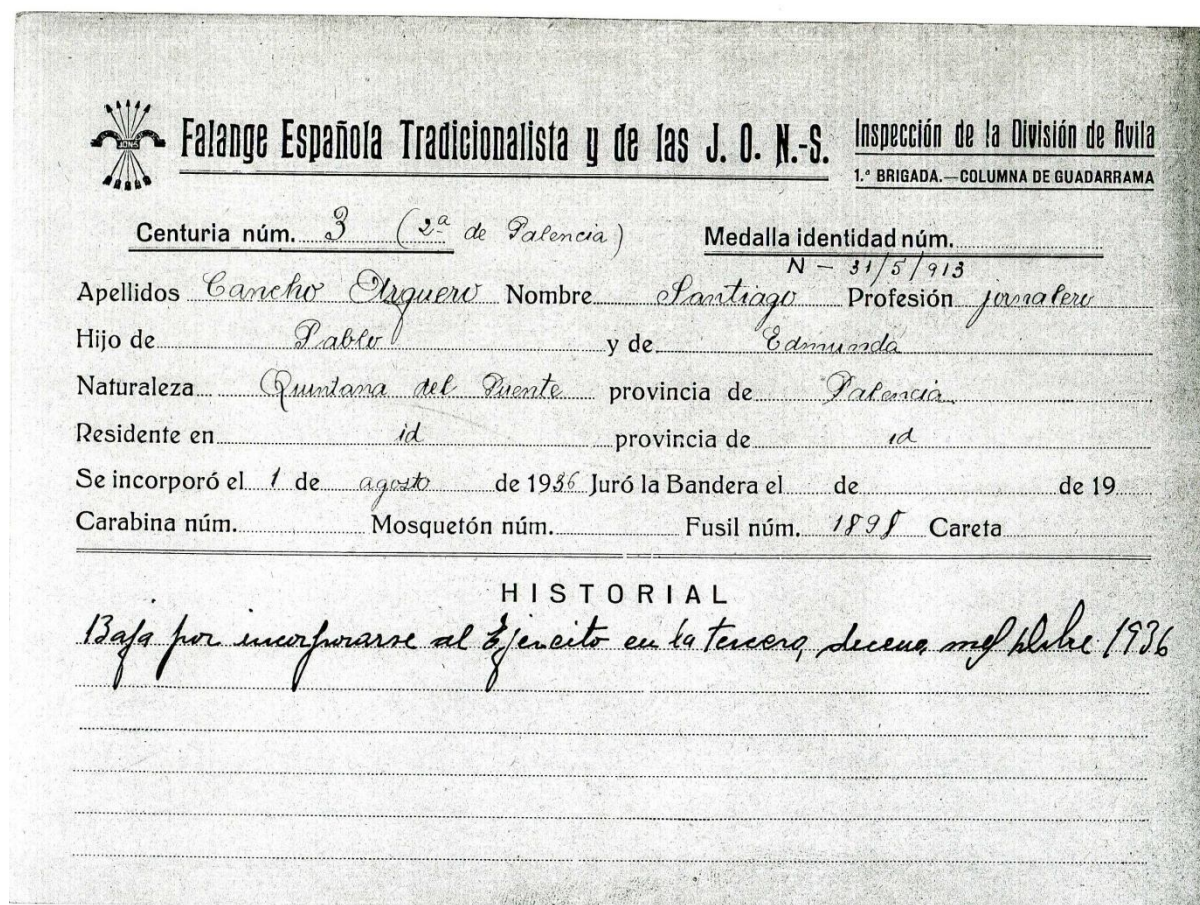 JONS
Falange Española Tradicionalista y de las J. O. N.-S.
Inspección de la División de Avila
1.ª BRIGADA.—COLUMNA DE GUADARRAMA
Centuria núm. 3 (2ª de Palencia) Medalla identidad núm.
N - 31/5/913
Apellidos Cancho Nombre Santiago Profesión jornalero
Hijo de Pablo y de Edmunda
Naturaleza Quintana del Puente provincia de Palencia
Residente en id provincia de id
Se incorporó el 1 de agosto de 1936 Juró la Bandera el de de 19
Carabina núm. Mosquetón núm. Fusil núm. 1898 Careta
HISTORIAL
Baja por incorporarse al Ejército en la tercera decena 1936